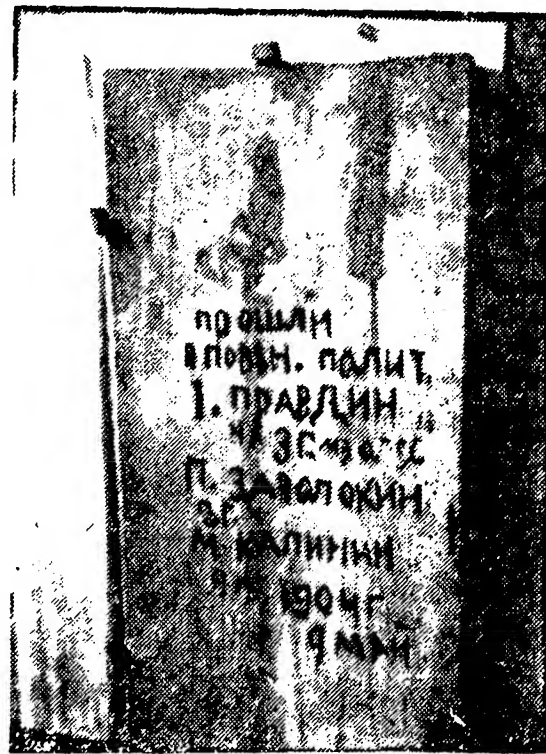 прошли
в повѣн. полит.
I. ПРАВДИН
на 3 г.
П. ЗАВОЛОКИН
3 г.
М. КАЛИНИН
1904 г.
9 МАИ